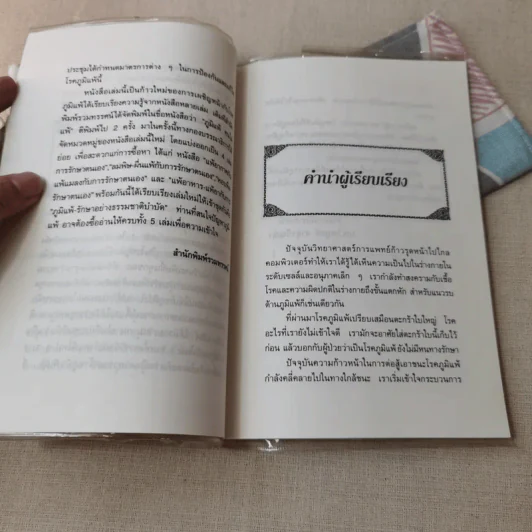 ประชุมได้กำหนดมาตรการต่าง ๆ ในการป้องกัน
โรคภูมิแพ้นี้
หนังสือเล่มนี้เป็นก้าวใหม่ของการเผชิญหน้ากับ
ภูมิแพ้ได้เรียบเรียงความรู้จากหนังสือหลายเล่ม
พิมพ์รวมทรรศน์ได้จัดพิมพ์ในชื่อหนังสือว่า "ภูมิแพ้
แพ้" ตีพิมพ์ไป ๒ ครั้ง มาในครั้งนี้ทางกองบรรณาธิการได้
จัดหมวดหมู่ของหนังสือเล่มนี้ใหม่ โดยแบ่งออกเป็น ๔ เล่ม
ย่อย เพื่อสะดวกแก่การซื้อหา ได้แก่ หนังสือ
การรักษาตนเอง","ลมพิษ-ผื่นแพ้กับการรักษาตนเอง",
แพ้แมลงกับการรักษาตนเอง" และ "แพ้อาหาร-แพ้ยากับการ
รักษาตนเอง" พร้อมกันนี้ได้เรียบเรียงเล่มใหม่ให้เข้าชุดกันคือ
"ภูมิแพ้-รักษาอย่างธรรมชาติบำบัด" ท่านที่สนใจปัญหาภูมิ
แพ้ อาจต้องซื้ออ่านให้ครบทั้ง 5 เล่มเพื่อความเข้าใจ
สำนักพิมพ์รวมทรรศน์
คำนำผู้เรียบเรียง
ปัจจุบันวิทยาศาสตร์การแพทย์ก้าวรุดหน้าไปไกล
คอมพิวเตอร์ทำให้เราได้รู้ได้เห็นความเป็นไปในร่างกายใน
ระดับเซลล์และอนุภาคเล็ก ๆ เรากำลังทำสงครามกับเชื้อ
โรคและความผิดปกติในร่างกายถึงขั้นแตกหัก สำหรับแนวรบ
ด้านภูมิแพ้ก็เช่นเดียวกัน
ที่ผ่านมาโรคภูมิแพ้เปรียบเสมือนตะกร้าใบใหญ่ โรค
อะไรที่เรายังไม่เข้าใจดี เรามักจะอาศัยใส่ตะกร้าใบนี้เก็บไว้
ก่อน แล้วบอกกับผู้ป่วยว่าเป็นโรคภูมิแพ้ยังไม่มีหนทางรักษา
ปัจจุบันความก้าวหน้าในการต่อสู้เอาชนะโรคภูมิแพ้
กำลังคลี่คลายไปในทางใกล้ชนะ เราเริ่มเข้าใจกระบวนการ